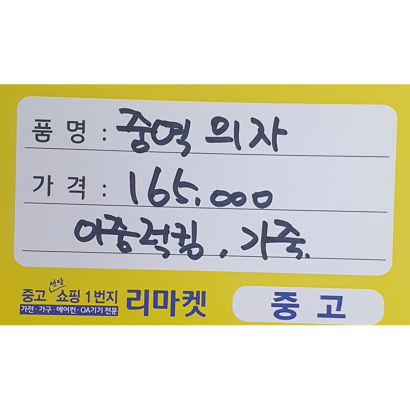 품 명 : 중역 의자
가 격 : 165,000
이중럭킹, 가죽.
반달
중고 쇼핑 1번지 리마켓 중 고
가전·가구·에어컨·OA기기 전문